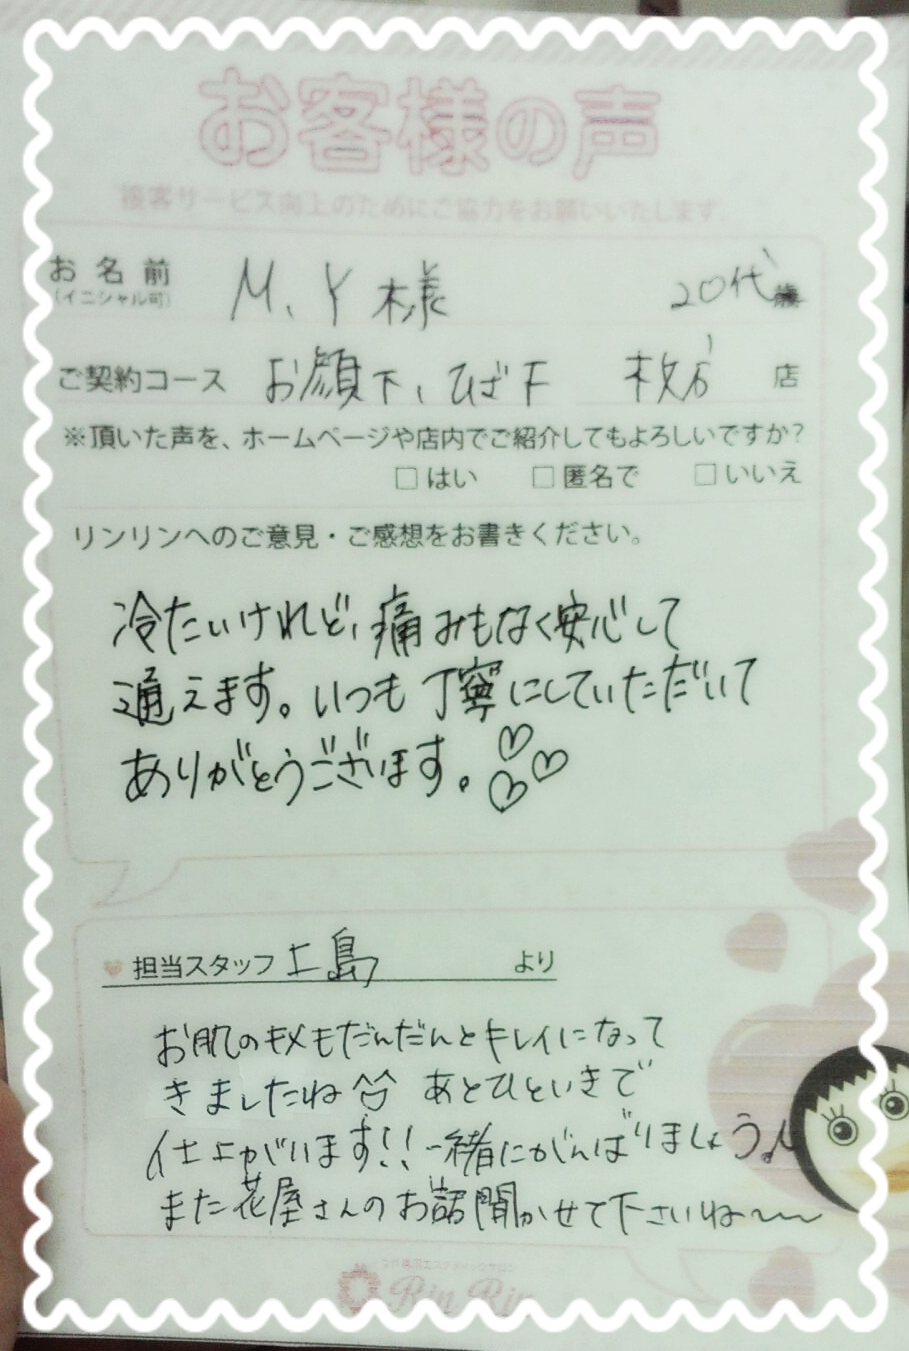 お客様の声
接客サービス向上のためにご協力をお願いいたします
お名前 M、Y 様 20代 歳
(イニシャル可)
ご契約コース お顔下、ひざ下 枚方 店
※頂いた声を、ホームページや店内でご紹介してもよろしいですか?
□はい □匿名で □いいえ
リンリンへのご意見・ご感想をお書きください。
冷たいけれど、痛みもなく安心して
通えます。いつも丁寧にしていただいて
ありがとうございます。♡♡♡
担当スタッフ 上島 より
お肌のキメもだんだんとキレイになって
きましたね あとひといきで
仕上がります!! 一緒にがんばりましょう♪
また花屋さんのお話聞かせて下さいね〜
女性専用エステティックサロン
Rin Rin